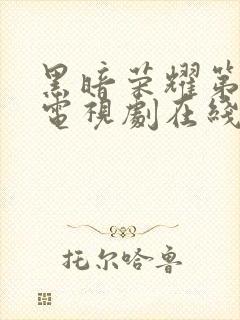 黑暗荣耀第
電視劇在綫
托尔哈鲁